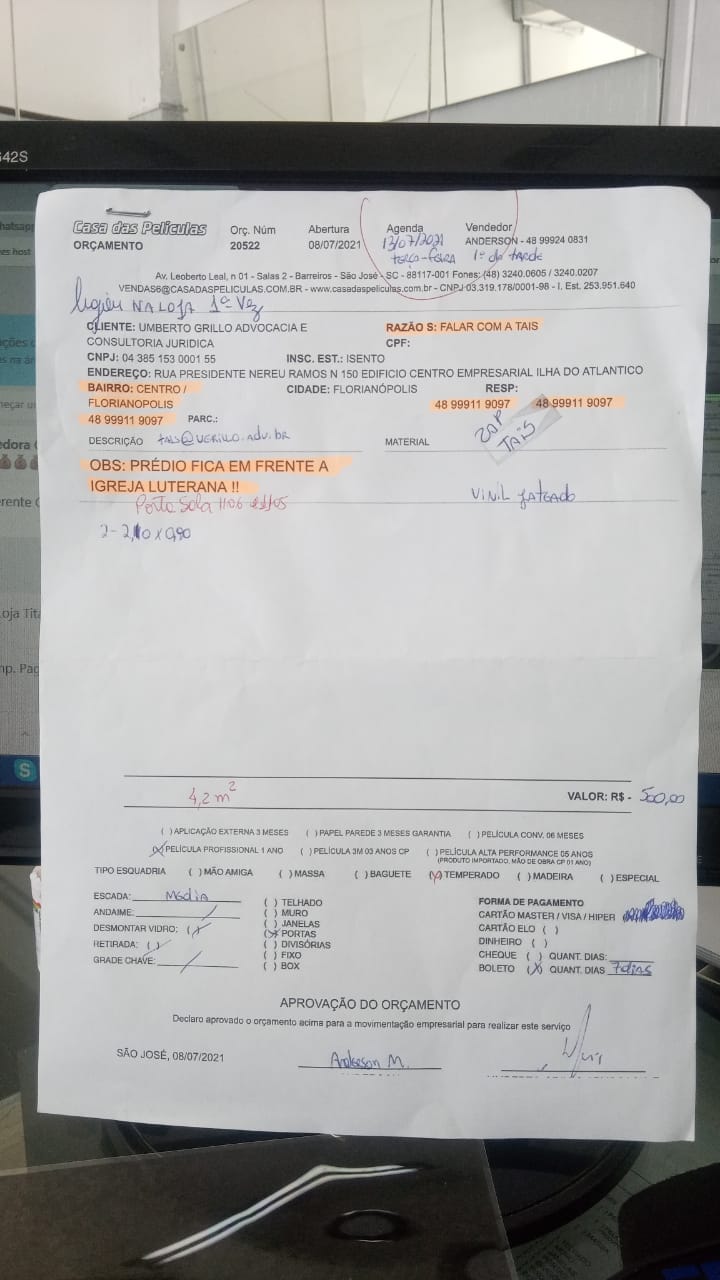 642S
Casa das Películas
ORÇAMENTO
Orç. Núm
20522
Abertura
08/07/2021
Agenda
13/07/2021
terça-feira 1º da tarde
Vendedor
ANDERSON - 48 99924 0831
Av. Leoberto Leal, n 01 - Salas 2 - Barreiros - São José - SC - 88117-001 Fones: (48) 3240.0605 / 3240.0207
VENDAS6@CASADASPELICULAS.COM.BR - www.casadaspeliculas.com.br - CNPJ 03.319.178/0001-98 - I. Est. 253.951.640
NA LOJA 1ª Vez
CLIENTE: UMBERTO GRILLO ADVOCACIA E
CONSULTORIA JURIDICA
RAZÃO S: FALAR COM A TAIS
CPF:
CNPJ: 04 385 153 0001 55
INSC. EST.: ISENTO
ENDEREÇO: RUA PRESIDENTE NEREU RAMOS N 150 EDIFICIO CENTRO EMPRESARIAL ILHA DO ATLANTICO
BAIRRO: CENTRO /
FLORIANOPOLIS
CIDADE: FLORIANÓPOLIS
RESP:
48 99911 9097 48 99911 9097
48 99911 9097 PARC.:
ZAP
TAIS
DESCRIÇÃO
MATERIAL
OBS: PRÉDIO FICA EM FRENTE A
IGREJA LUTERANA !!
Vinil Jateado
Porta Sala 1106
2 - 2,10 x 0,90
4,2 m²
VALOR: R$ - 500,00
( ) APLICAÇÃO EXTERNA 3 MESES ( ) PAPEL PAREDE 3 MESES GARANTIA ( ) PELÍCULA CONV. 06 MESES
(X) PELÍCULA PROFISSIONAL 1 ANO ( ) PELÍCULA 3M 03 ANOS CP ( ) PELÍCULA ALTA PERFORMANCE 05 ANOS
(PRODUTO IMPORTADO, MÃO DE OBRA CP 01 ANO)
TIPO ESQUADRIA ( ) MÃO AMIGA ( ) MASSA ( ) BAGUETE (X) TEMPERADO ( ) MADEIRA ( ) ESPECIAL
ESCADA: Média
ANDAIME:
DESMONTAR VIDRO:
RETIRADA: ( )
GRADE CHAVE:
( ) TELHADO
( ) MURO
( ) JANELAS
(X) PORTAS
( ) DIVISÓRIAS
( ) FIXO
( ) BOX
FORMA DE PAGAMENTO
CARTÃO MASTER / VISA / HIPER
CARTÃO ELO ( )
DINHEIRO ( )
CHEQUE ( ) QUANT. DIAS:
BOLETO (X) QUANT. DIAS 7 dias
APROVAÇÃO DO ORÇAMENTO
Declaro aprovado o orçamento acima para a movimentação empresarial para realizar este serviço
SÃO JOSÉ, 08/07/2021
Anderson M.